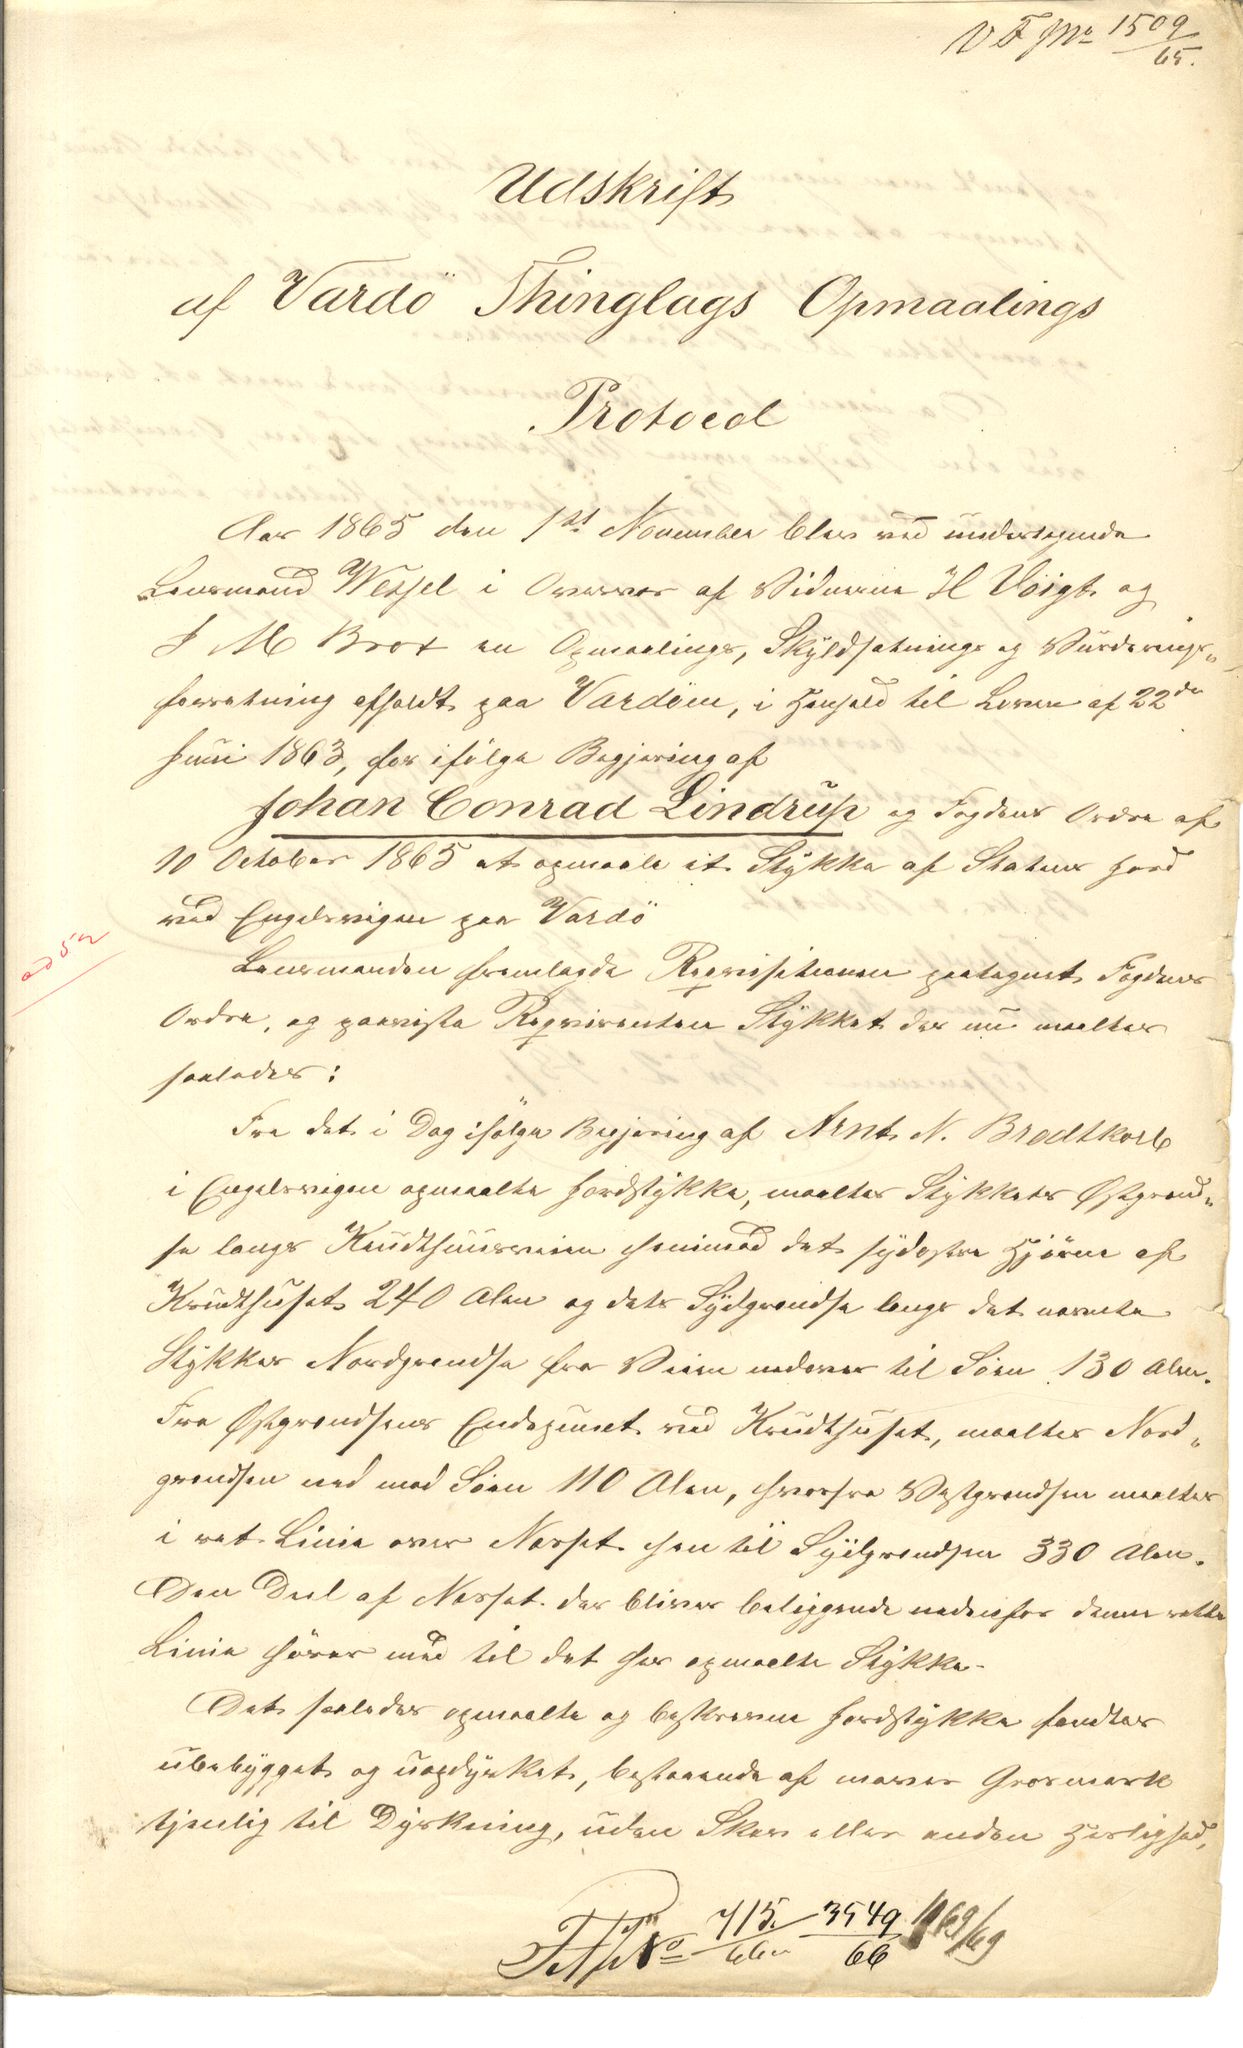 V F JNo 1509/65.
Udskrift
af Vardö Thinglags Opmaalings
Protocol
Aar 1865 den 1st November blev ved undertegnede
Lensmand Wessel i Overvær af Vidnerne H Voigt og
J M Brox en Opmaalings, Skyldsætnings og Vurderings„
forretning afholdt paa Vardöen, i Henhold til Loven af 22de
Juni 1863, for ifölge Begjæring af
Johan Conrad Lindrup og Fogdens Ordre af
10 October 1865 at opmaale et Stykke af Statens Jord
ved Engelsvigen paa Vardö
Lensmanden fremlagde Reqvisitionen paategnet Fogdens
Ordre, og paaviste Reqvirenten Stykket der nu maaltes
saaledes:
Fra det i Dag ifölge Begjæring af Arnt N. Bredtkorb
i Engelsvigen opmaalte Jordstykke, maaltes Stykkets Østgrænd„
se langs Krudthuusveien henimod det sydøstre Hjörne af
Krudthuset 240 Alen og dets Sydgrændse langs det nævnte
Stykkes Nordgrændse fra Veien nedover til Söen 130 Alen.
Fra Østgrændsens Endepunct ved Krudthuset, maaltes Nord„
grændsen ned mod Söen 110 Alen, hvorfra Vestgrændsen maaltes
i ret Linie over Næsset hen til Sydgrændsen 330 Alen.
Den Deel af Næsset der bliver beliggende nedenfor denne rette
Linie hörer med til det her opmaalte Stykke.
Det saaledes opmaalte og beskrevne Jordstykke fandtes
ubebygget og uopdyrket, bestaaende af mager Græsmark
tjenlig til Dyrkning, uden Skov eller anden Herlighed,
ad 52
No 715 3549/66 1969/69